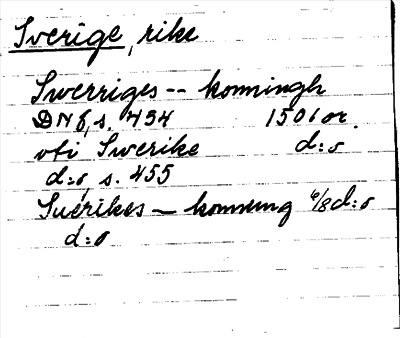 Sverige, rike
Swerriges -- konningh
DN 6, s. 434 1501 or.
vti Swerike d:o
d:o, s. 455
Suerikes - konnung 6/8 d:o
d:o